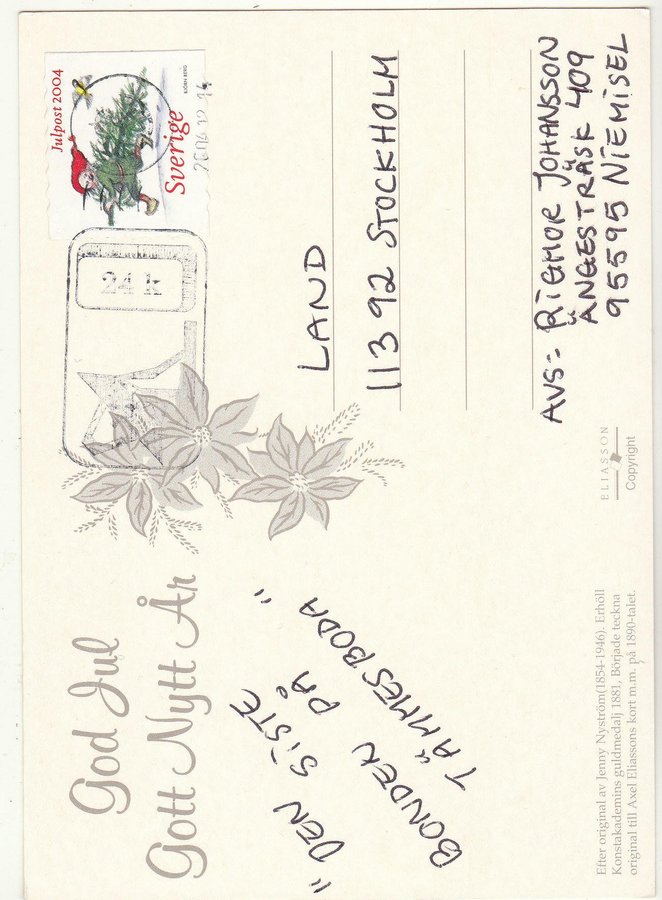 God Jul
Gott Nytt År
"DEN SISTE
BONDEN PÅ
TÄMMESBODA"
Efter original av Jenny Nyström(1854-1946). Erhöll
Konstakademins guldmedalj 1881, Började teckna
original till Axel Eliassons kort m.m. på 1890-talet.
ELIASSON
Copyright
Julpost 2004
Sverige
BJÖRN BERG
24 k
LAND
113 92 STOCKHOLM
AVS:- RIGMOR JOHANSSON
ÄNGESTRÄSK 409
95595 NIEMISEL